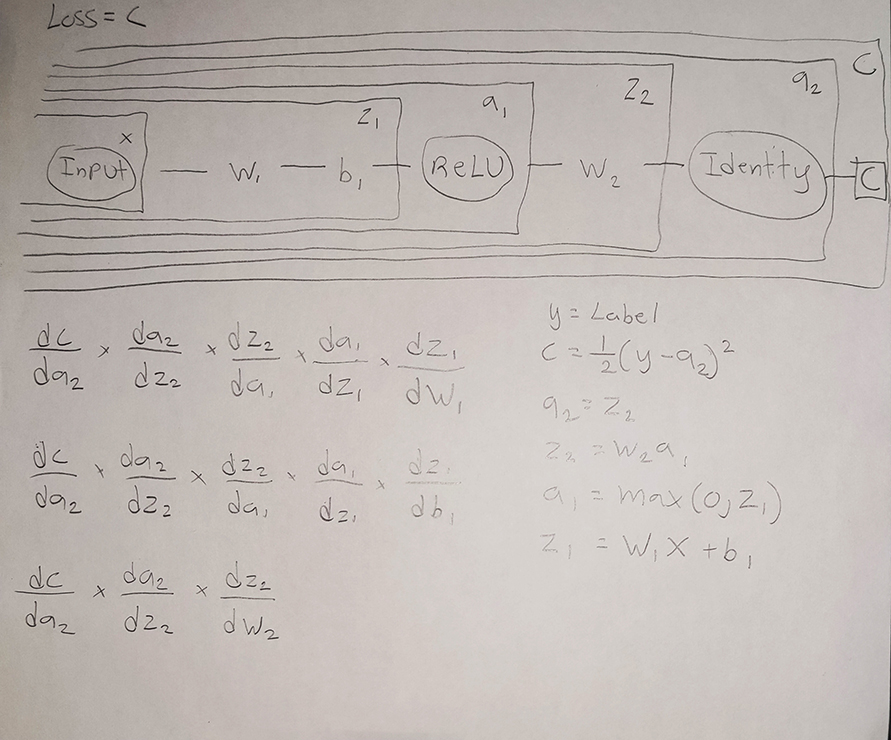 Loss = C
C
a₂
z₂
a₁
z₁
x
Input — W₁ — b₁ — ReLU — W₂ — Identity — C
dc/da₂ × da₂/dz₂ × dz₂/da₁ × da₁/dz₁ × dz₁/dW₁
dc/da₂ × da₂/dz₂ × dz₂/da₁ × da₁/dz₁ × dz₁/db₁
dc/da₂ × da₂/dz₂ × dz₂/dW₂
y = Label
C = 1/2(y - a₂)²
a₂ = z₂
z₂ = W₂a₁
a₁ = max(0, z₁)
z₁ = W₁X + b₁